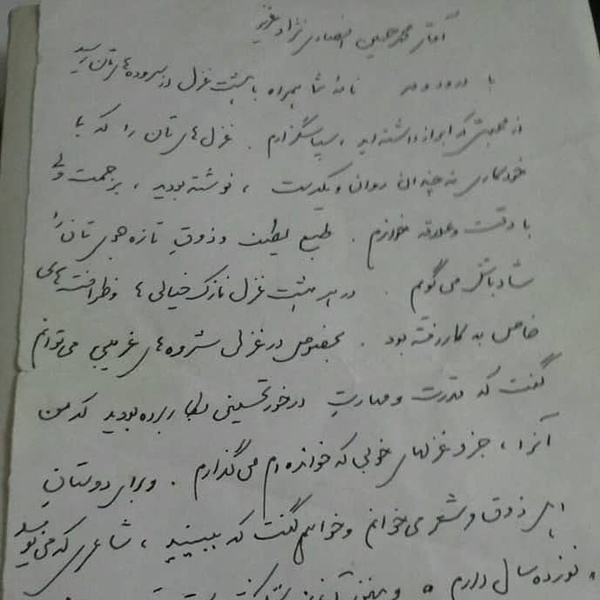 آقای محمدحسین انصاری نژاد عزیز
با درود و مهر نامهٔ شما همراه با هشت غزل از سروده های تان رسید
از محبتی که ابراز داشته اید، سپاسگزارم. غزل های تان را که با
خودکاری نه چندان روان و یکدست، نوشته بودید، بزحمت ولی
با دقت و علاقه خواندم. طبع لطیف و ذوق تازه جوی تان را
شادباش می گویم. در هر هشت غزل نازک خیالی ها و ظرافت های
خاصی به کار رفته بود. بخصوص در غزل شروه های غریبی می توانم
گفت که قدرت و مهارت درخور تحسینی بکار برده بودید که من
آنرا، جزو غزلهای خوبی که خوانده ام می گذارم. و برای دوستان
اهل ذوق و شعر می خوانم و خواهم گفت که ببینید، شاعری که می نویسد
نوزده سال دارم